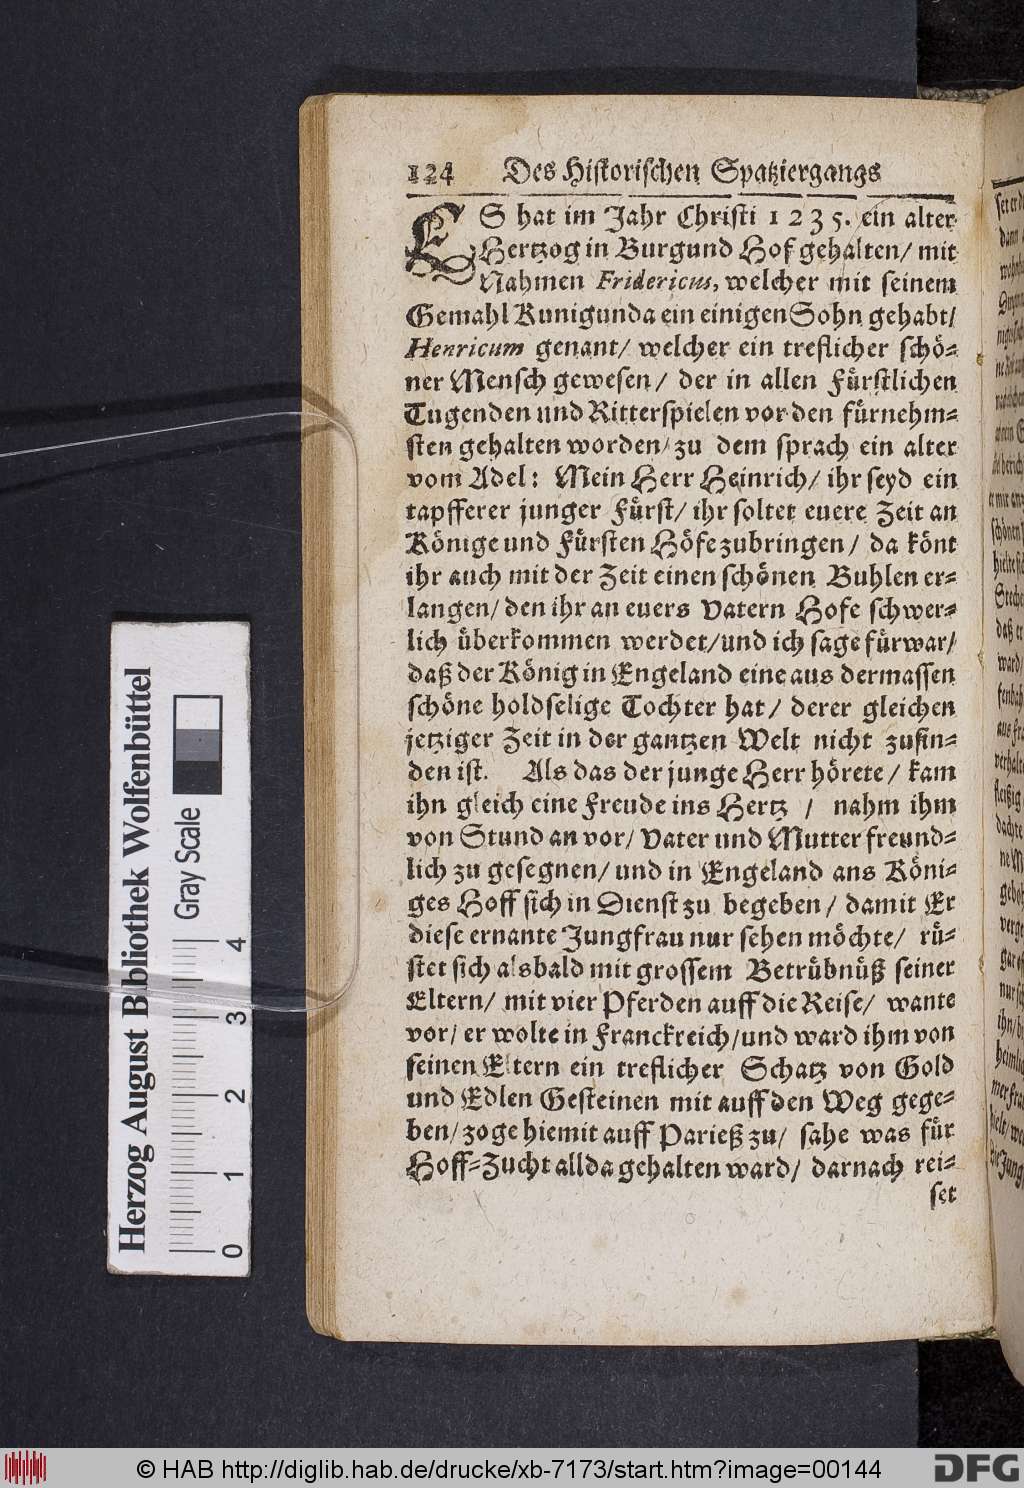 124 Des Historischen Spatziergangs
ES hat im Jahr Christi 1235. ein alter
Hertzog in Burgund Hof gehalten/ mit
Nahmen Fridericus, welcher mit seinem
Gemahl Kunigunda ein einigen Sohn gehabt/
Henricum genant/ welcher ein treflicher schö-
ner Mensch gewesen/ der in allen Fürstlichen
Tugenden und Ritterspielen vor den fürnehm-
sten gehalten worden/ zu dem sprach ein alter
vom Adel: Mein Herr Heinrich/ ihr seyd ein
tapfferer junger Fürst/ ihr soltet euere Zeit an
Könige und Fürsten Höfe zubringen/ da könt
ihr auch mit der Zeit einen schönen Buhlen er-
langen/ den ihr an euers Vatern Hofe schwer-
lich überkommen werdet/ und ich sage fürwar/
daß der König in Engeland eine aus dermassen
schöne holdselige Tochter hat/ derer gleichen
jetziger Zeit in der gantzen Welt nicht zufin-
den ist. Als das der junge Herr hörete/ kam
ihn gleich eine Freude ins Hertz / nahm ihm
von Stund an vor/ Vater und Mutter freund-
lich zu gesegnen/ und in Engeland ans Köni-
ges Hoff sich in Dienst zu begeben/ damit Er
diese ernante Jungfrau nur sehen möchte/ rü-
stet sich alsbald mit grossem Betrübnüß seiner
Eltern/ mit vier Pferden auff die Reise/ wante
vor/ er wolte in Franckreich/ und ward ihm von
seinen Eltern ein treflicher Schatz von Gold
und Edlen Gesteinen mit auff den Weg gege-
ben/ zoge hiemit auff Parieß zu/ sahe was für
Hoff-Zucht allda gehalten ward/ darnach rei-
set
Herzog August Bibliothek Wolfenbüttel
Gray Scale
0 1 2 3 4
© HAB http://diglib.hab.de/drucke/xb-7173/start.htm?image=00144
DFG